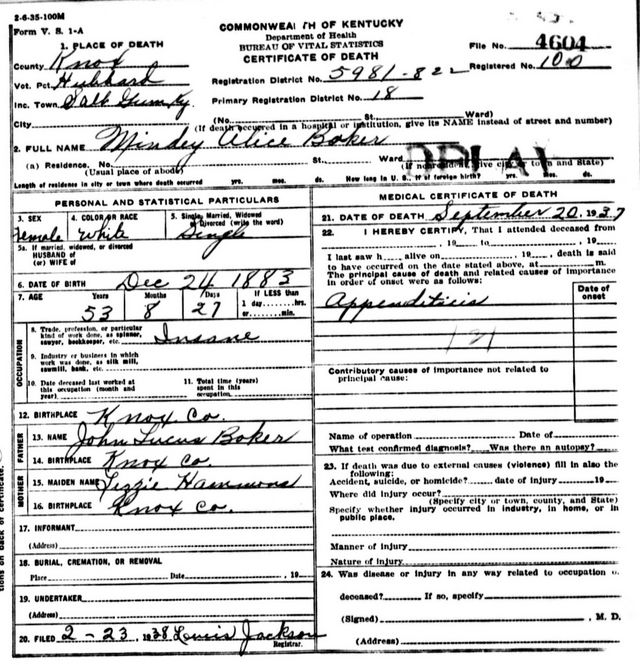 2-6-35-100M
Form V. S. 1-A
COMMONWEALTH OF KENTUCKY
Department of Health
BUREAU OF VITAL STATISTICS
CERTIFICATE OF DEATH
File No. 4604
Registered No. 100
1. PLACE OF DEATH
County Knox
Vot. Pct. Hubbard
Inc. Town Salt Gum, Ky
City
Registration District No. 5981-822
Primary Registration District No. 18
(No. St. Ward)
(If death occurred in a hospital or institution, give its NAME instead of street and number)
2. FULL NAME Mindey Alice Baker
(a) Residence. No. St. Ward
(Usual place of abode) (If nonresident, give city or town and State)
DELAY
Length of residence in city or town where death occurred yrs. mos. ds. How long in U. S. if of foreign birth? yrs. mos. ds.
PERSONAL AND STATISTICAL PARTICULARS
3. SEX Female
4. COLOR OR RACE White
5. Single, Married, Widowed or Divorced (write the word) Single
5a. If married, widowed, or divorced
HUSBAND of
(or) WIFE of
6. DATE OF BIRTH Dec 24 1883
7. AGE Years 53 Months 8 Days 27 If LESS than 1 day hrs. or min.
OCCUPATION
8. Trade, profession, or particular kind of work done, as spinner, sawyer, bookkeeper, etc. Insane
9. Industry or business in which work was done, as silk mill, sawmill, bank, etc.
10. Date deceased last worked at this occupation (month and year)
11. Total time (years) spent in this occupation
12. BIRTHPLACE Knox Co.
FATHER
13. NAME John Lucus Baker
14. BIRTHPLACE Knox Co.
MOTHER
15. MAIDEN NAME Lizzie Hammons
16. BIRTHPLACE Knox Co.
17. INFORMANT
(Address)
18. BURIAL, CREMATION, OR REMOVAL
Place Date , 19
19. UNDERTAKER
(Address)
20. FILED 2-23, 1938 Louis Jackson
Registrar.
MEDICAL CERTIFICATE OF DEATH
21. DATE OF DEATH September 20, 1937
22. I HEREBY CERTIFY, That I attended deceased from
, 19 to , 19
I last saw h alive on , 19 , death is said
to have occurred on the date stated above, at m.
The principal cause of death and related causes of importance
in order of onset were as follows:
Date of onset
Appenditicis
121
Contributory causes of importance not related to
principal cause:
Name of operation Date of
What test confirmed diagnosis? Was there an autopsy?
23. If death was due to external causes (violence) fill in also the
following:
Accident, suicide, or homicide? date of injury 19
Where did injury occur?
(Specify city or town, county, and State)
Specify whether injury occurred in industry, in home, or in
public place.
Manner of injury
Nature of injury
24. Was disease or injury in any way related to occupation o.
deceased? If so, specify
(Signed) , M. D.
(Address)
tions on back of certificate.